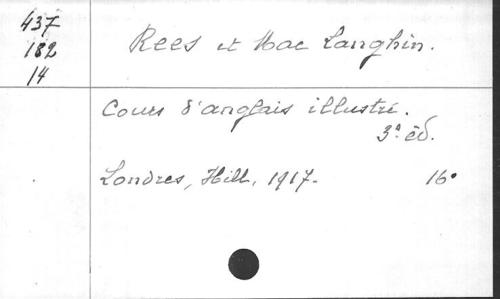 437
182
14
Rees et Mac Langhin.
Cours d'anglais illustré.
3ª éd.
Londres, Hill, 1917. 16°